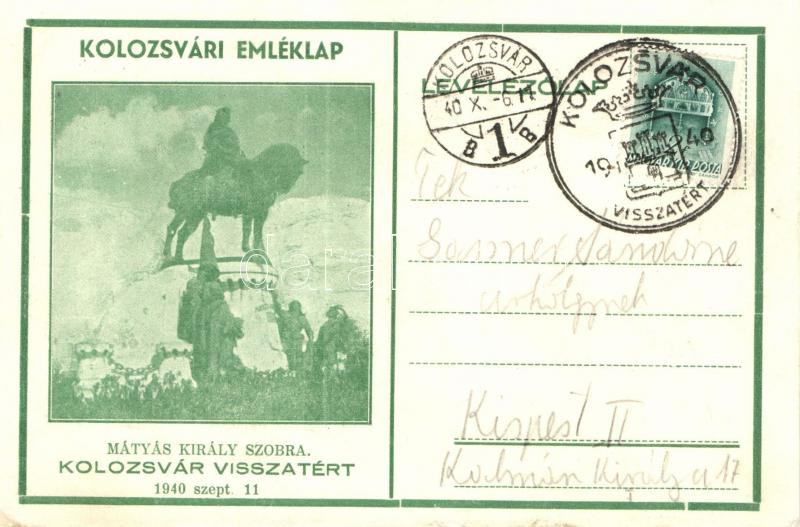 KOLOZSVÁRI EMLÉKLAP
LEVELEZŐLAP
KOLOZSVÁR
40 X. -6. 11
B 1 B
KOLOZSVÁR
1940
VISSZATÉRT
MAGYAR POSTA
Tek
Sándorné
úrhölgynek
Kispest II
Kálmán Király u 17
darabanth
MÁTYÁS KIRÁLY SZOBRA.
KOLOZSVÁR VISSZATÉRT
1940 szept. 11